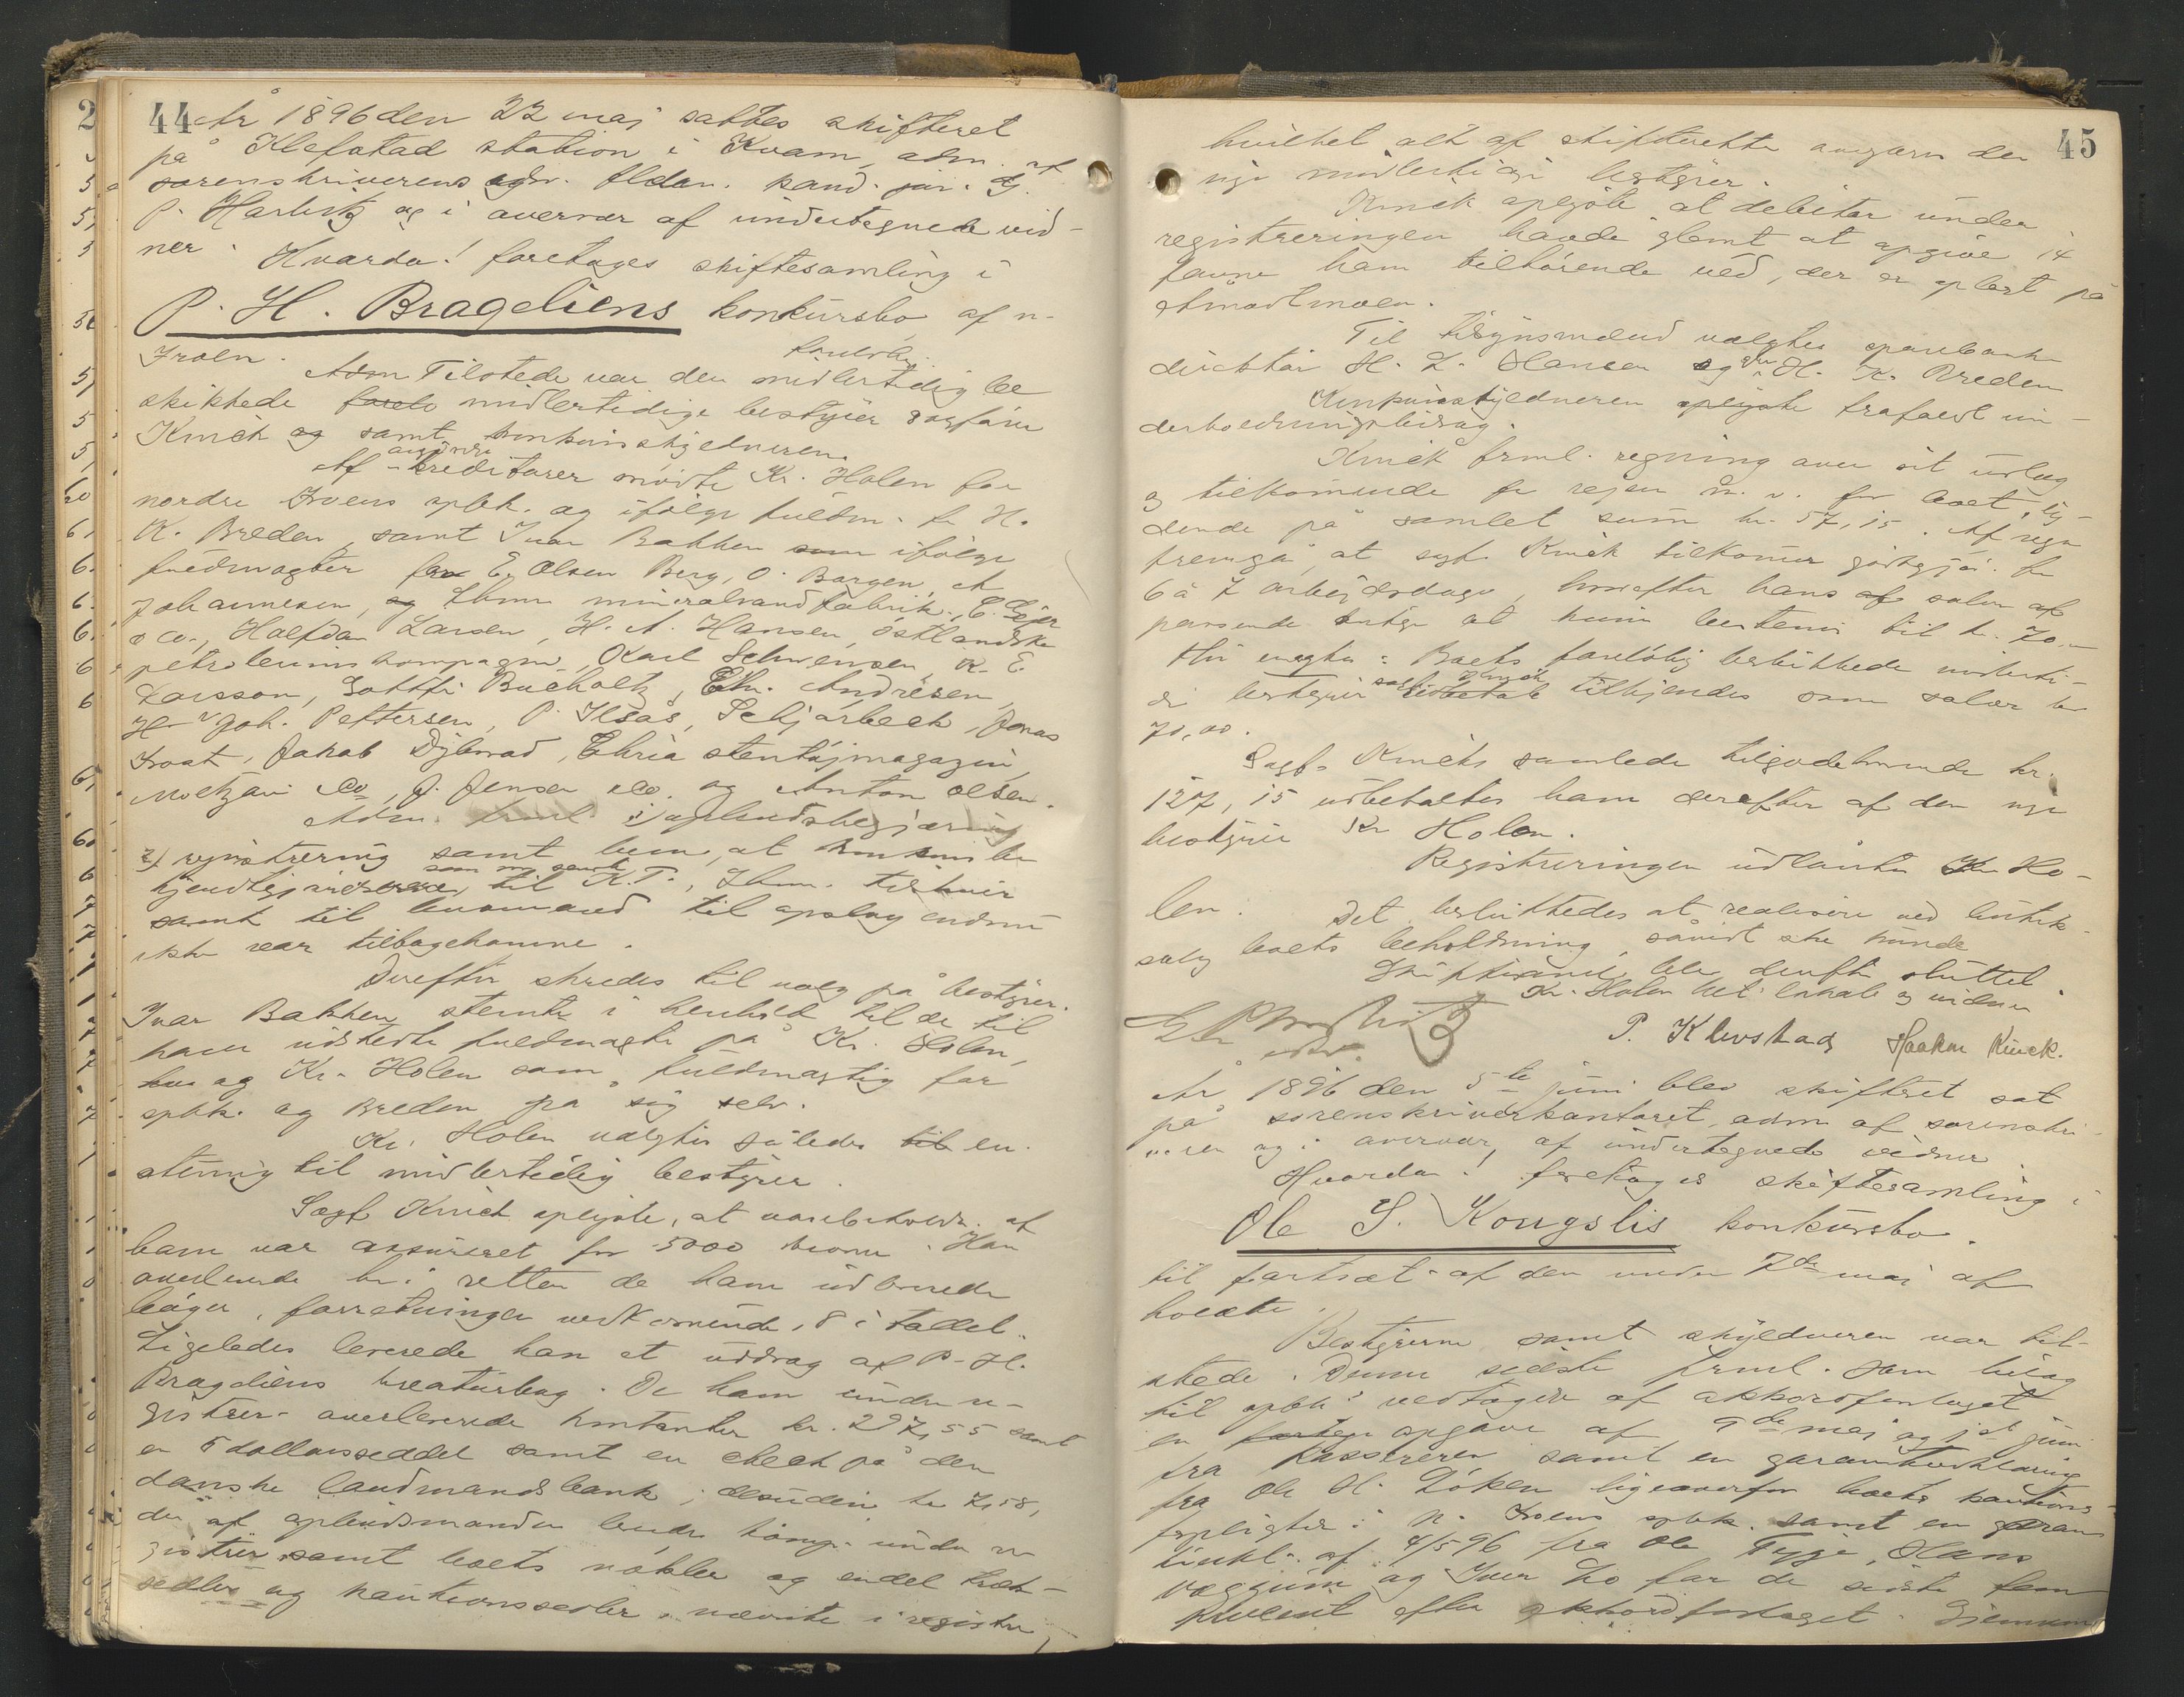 44 År 1896 den 22 maj sattes skifteret
på Klefstad station i Kvam, adm. af
sorenskriverens edsv. fldm. kand. jur. Gj.
P. Harbitz og i overvær af undertegnede vid-
ner. Hvorda! foretoges skiftesamling i
P. H. Brageliens konkursbo af n.
Froen.
Tilstede var den midlertidig be
skikkede midlertidige bestyrer sagfører
Kinck og samt konkursskyldneren.
Af kreditorer mødte Kr. Holen for
nordre Froens spbk. og ifølge fuldm. fr H.
K. Breden, samt Ivar Bakken som ifølge
fuldmagter fra E. Olsen Berg, O. Borgen, A
Johannesen, og Lhmr mineralvandfabrik, C. Geijer
& Co., Halfdan Larsen, H. A. Hansen, østlandske
petroleumskompagni, Karl Schwensen, K. E.
Larsson, Gottfr Bucholtz, Chr. Andresen,
Joh. Pettersen, P. Ilsås, Schjarbeck, Jonas
Jakob Dybwad, stentøjmagazin,
J. Jensen & Co. og Anton Olsen.
Adm. freml. 1) opbudsbegjæring
2) registrering samt bem., at konkursbe
kjendtgjørelserne, som var sendt til K.T., Lhmr. tilskuer
samt til lensmand til opslag endnu
ikke var tilbagekomne.
Derefter skredes til valg på bestyrer.
Ivar Bakken stemte i henhold til de til
ham udstedte fuldmagter på Kr. Holen,
og Kr. Holen som fuldmægtig for
spbk. og Breden på sig selv.
Kr. Holen valgtes således til en-
stemmig til midlertidig bestyrer.
Sagf Kinck oplyste, at varebeholdn. af
ham var assureret for 5000 kroner. Han
overleverede her i retten de ham udleverede
bøger, forretningen vedkommende, 8 i tallet.
Ligeledes leverede han et uddrag af P. H.
Brageliens kreaturbog. De ham under re-
gistrer. overleverede kontanter kr. 297,55 samt
en 5 dollarsseddel samt en check på den
danske landmandsbank; desuden kr 7,58,
der af opbudsmanden under re
gistrer. samt boets nøkler og endel
sedler og kautionssedler, nævnte i registre
45
hvilket alt af skifteretten overgaves den
nye midlertidige bestyrer.
Kinck oplyste at debitor under
registreringen havde glemt at opgive 14
favne ham tilhørende ved, der er oplagt på
Åmodtmoen.
Til tilsynsmænd valgtes sparebank
direktør H. L. Hansen og H. K. Breden
Konkursskyldneren frafaldt un-
derholdningsbidrag.
Kinck freml. regning over sit udlæg
og tilkommende fr rejser m. v. for boet, ly-
dende på samlet sum kr. 57,15. Af regn
fremgår, at sagf Kinck tilkommer godtgjør. fr
6 à 7 arbejdsdage, hvorefter hans salær
passende antoges at kunne bestemmes til kr. 70.
thi eragtes: Boets foreløbig beskikkede midlerti-
di bestyrer sagf. Kinck tilkjendes som salær kr
70,00.
Sagf. Kincks samlede tilgodehavende kr.
127,15 udbetaltes ham derefter af den nye
bestyrer Kr Holen.
Registreringen udlåntes Kr Ho-
len.
Det besluttedes at realisere ved butik-
salg boets beholdning, såvidt ske kunde
Skiftesaml. blev derefter sluttet.
Kr. Holen bet. lokale og vidner
P. Klevstad Haakon Kinck.
edsv.
År 1896 den 5te juni blev skifteret sat
på sorenskriverkontoret, adm af sorenskri-
veren og i overvær af undertegnede vidner
Hvorda! foretoges skiftesamling i
Ole S. Kongslis konkursbo.
til fortsæt. af den under 7de mai af
holdte.
Bestyreren samt skyldneren var til-
stede. Denne sidste freml. som bilag
til spbk's vedtagen af akkordforslaget
en opgave af 9de maj og 1st juni
fra kassereren samt en garantierklæring
fra Ole H. Løken ligeoverfor boets kautions-
forpligter i n. Froens spbk. samt en garan
tierkl. af 4/5 96 fra Ole Tygje, Hans
Vaggum og Iver Lo for de første fem
procent efter akkordforslaget. Gjennem